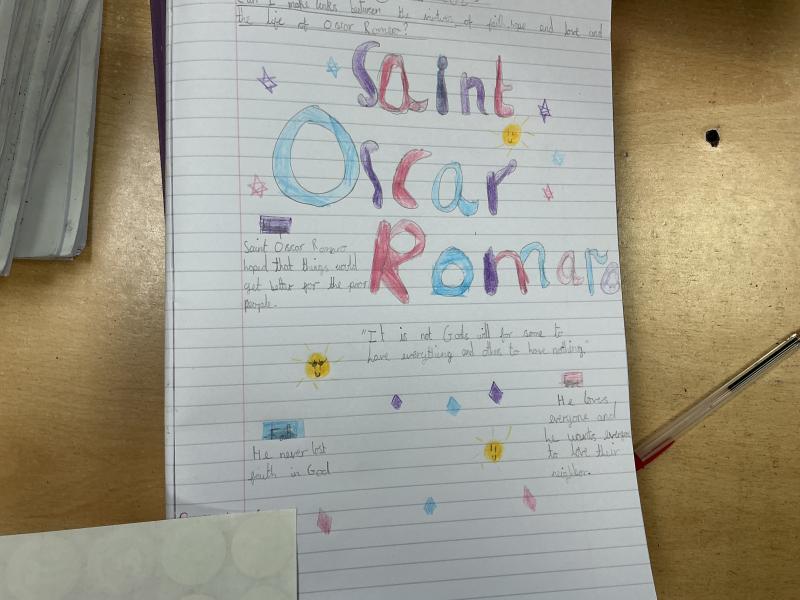 Can I make links between the virtues of faith, hope and love and
the life of Oscar Romero?
Saint
Oscar
Romaro
Saint Oscar Romero
hoped that things would
get better for the poor
people.
"It is not Gods will for some to
have everything and others to have nothing."
He loves
everyone and
he wants everyone
to love their
neighbor.
Faith
He never lost
faith in God